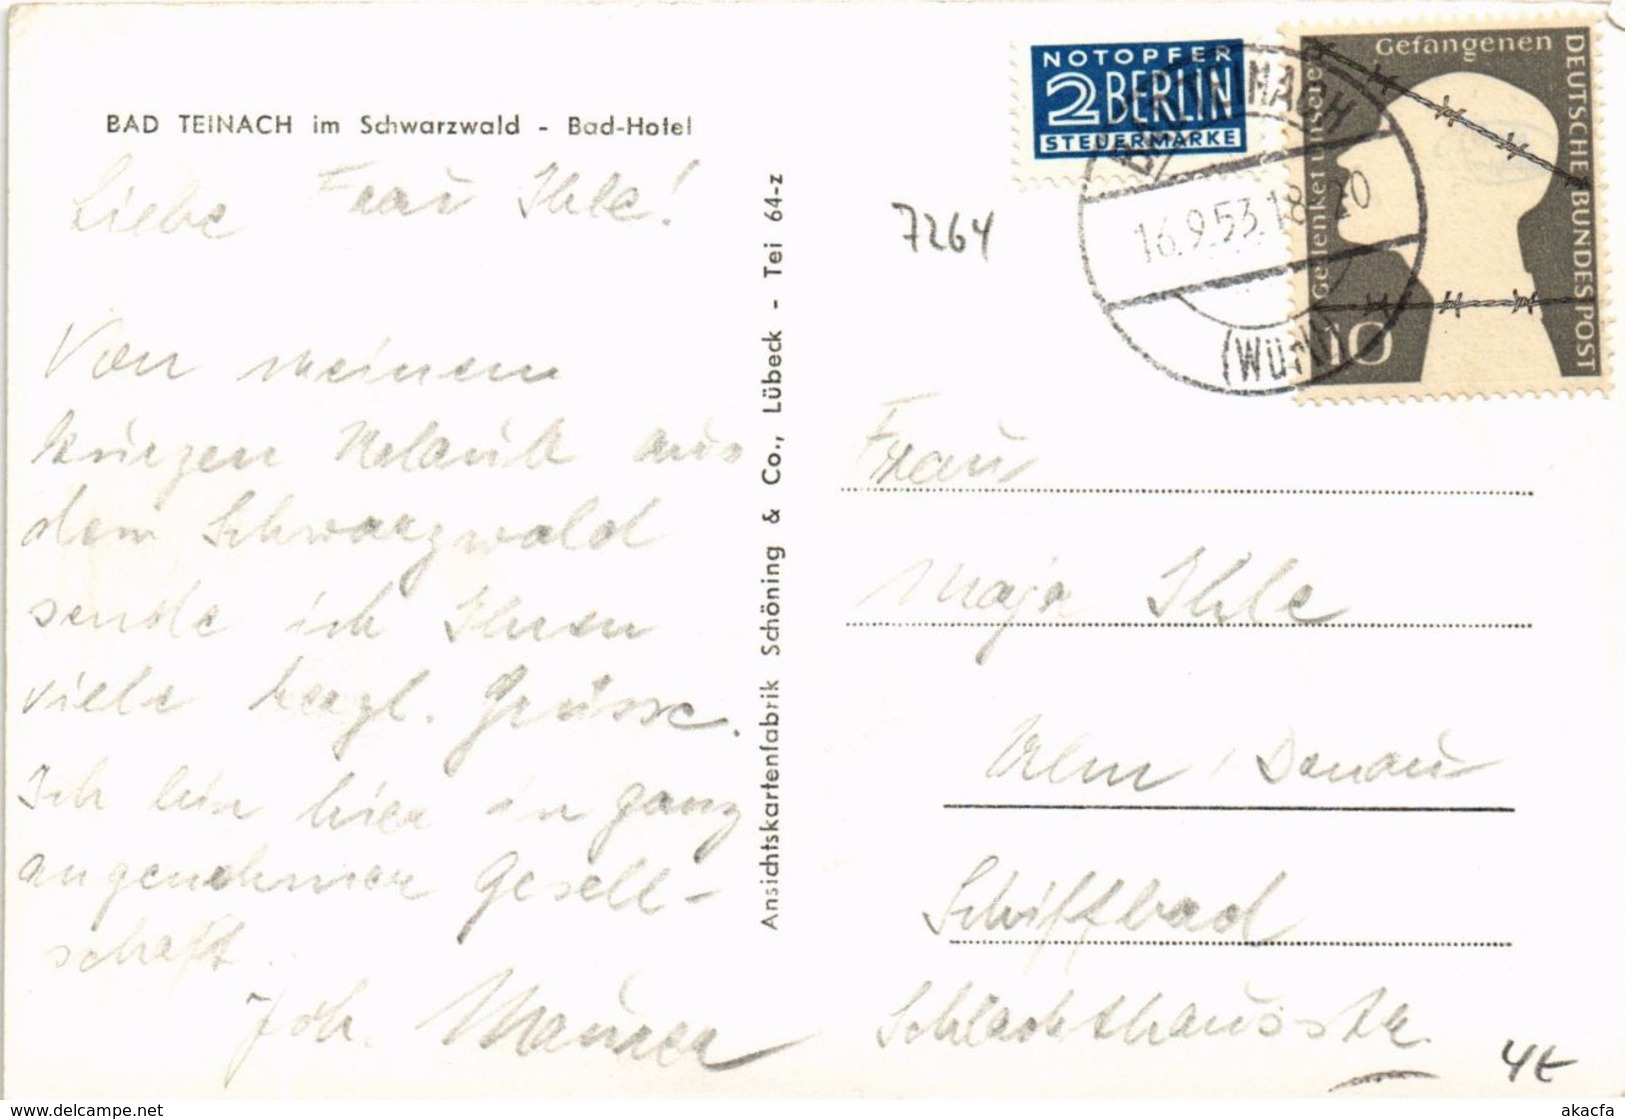 BAD TEINACH im Schwarzwald - Bad-Hotel
Liebe Frau Ihle!
Von meinem
kurzen Urlaub aus
dem Schwarzwald
sende ich Ihnen
viele herzl. Grüsse.
Ich bin hier in ganz
angenehmer Gesell-
schaft.
Joh. Maurer
Ansichtskartenfabrik Schöning & Co., Lübeck - Tei 64-z
7264
NOTOPFER
2 BERLIN
STEUERMARKE
BAD TEINACH
16.9.53.18-20
(Württ)
Gedenket unserer
Gefangenen
DEUTSCHE BUNDESPOST
10
Frau
Maja Ihle
Ulm / Donau
Schiffbad
Schlachthausstr.
4E
delcampe.net
akacfa